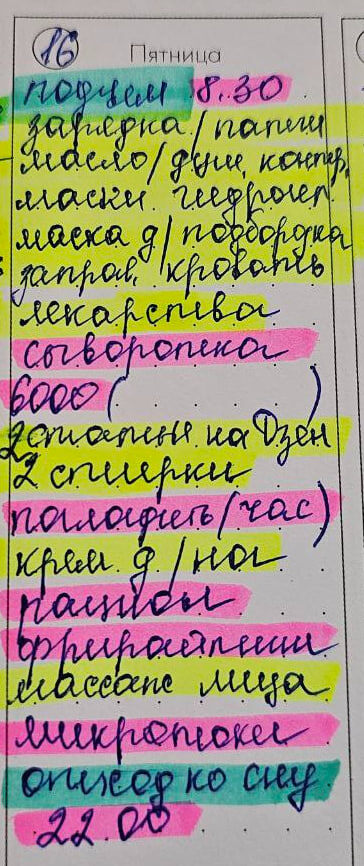 16 Пятница
подъем 8.30
зарядка/папми
масло/душ, контр.
маски. гидролп.
маска д/подбородка
заправ. кровать
лекарства
сыворотка
6000 ( )
2 статьи на Дзен
2 стирки
погладить (час)
крем д/ног
рацион
фрирайтинг
массаж лица
микротоки
отход ко сну
22.00